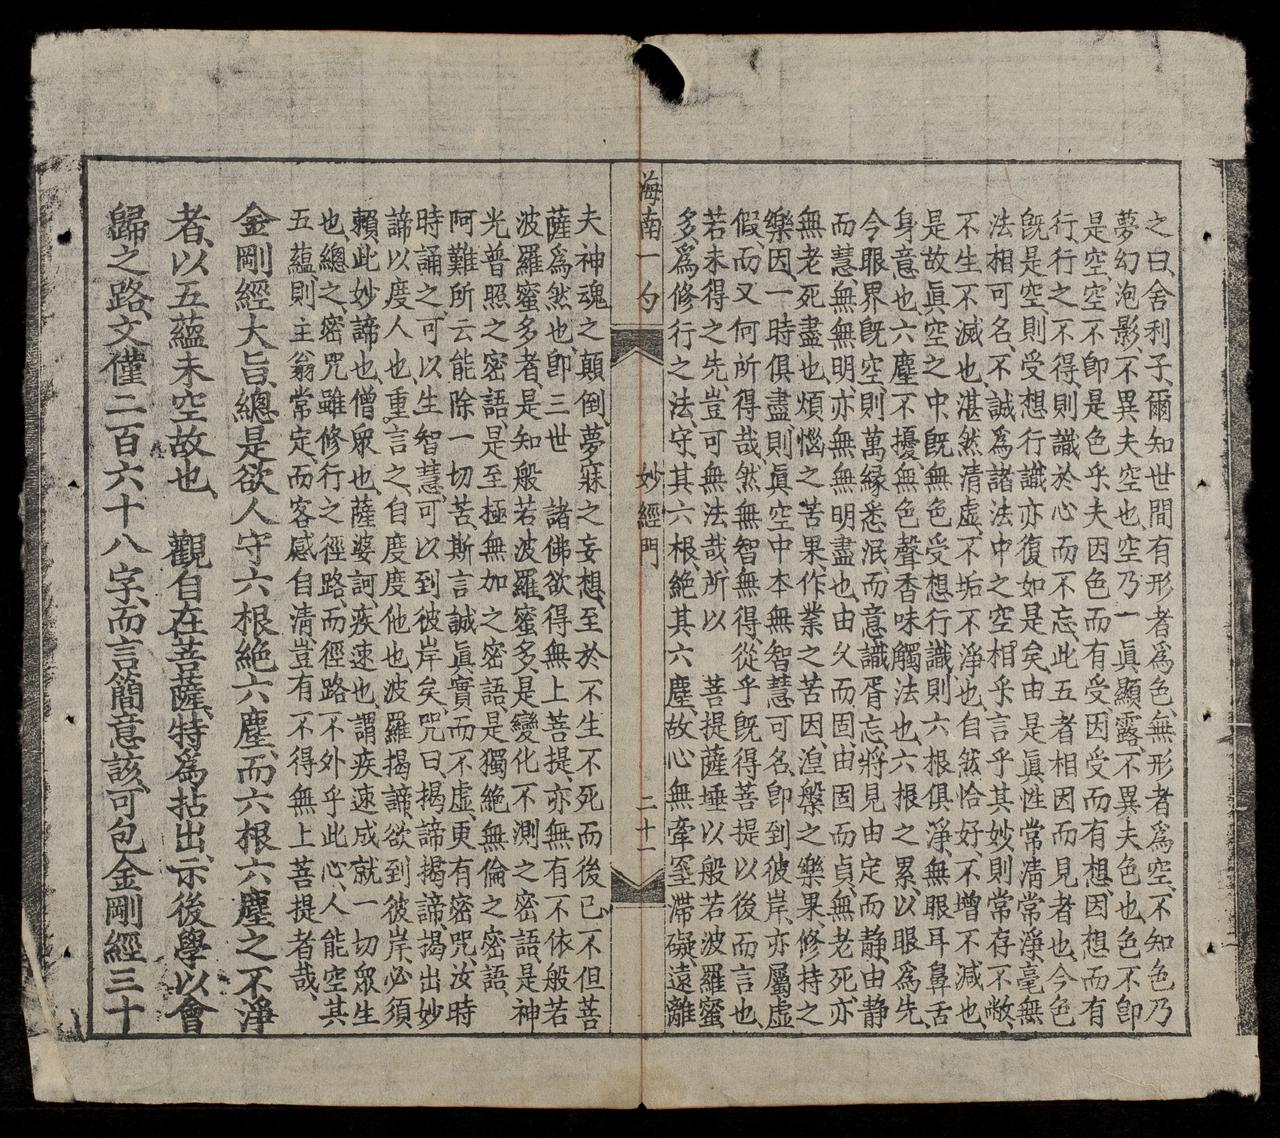 之曰、舍利子、爾知世間有形者爲色、無形者爲空、不知色乃
夢幻泡影、不異夫空也、空乃一眞顯露、不異夫色也、色不卽
是空、空不卽是色乎、夫因色而有受、因受而有想、因想而有
行、行之不得、則識於心而不忘、此五者相因而見者也、今色
旣是空、則受想行識亦復如是矣、由是眞性常清常淨、毫無
法相可名、不誠爲諸法中之空相乎、言乎其妙、則常存不敝、
不生不滅也、湛然清虛、不垢不淨也、自然恰好、不增不減也、
是故眞空之中、旣無色受想行識、則六根俱淨、無眼耳鼻舌
身意也、六塵不擾、無色聲香味觸法也、六根之累、以眼爲先、
今眼界旣空、則萬緣悉泯、而意識胥忘、將見由定而靜、由靜
而慧、無無明亦無無明盡也、由久而固、由固而貞、無老死亦
無老死盡也、煩惱之苦果、作業之苦因、湼槃之樂果、修持之
樂因、一時俱盡、則眞空中本無智慧可名、卽到彼岸、亦屬虛
假、而又何所得哉、然無智無得、從乎旣得菩提以後而言也、
若未得之先、豈可無法哉、所以　菩提薩埵以般若波羅蜜
多爲修行之法、守其六根、絶其六塵、故心無牽罣滯礙、遠離
海南一勺　妙經門　二十一
夫神魂之顛倒、夢寐之妄想、至於不生不死而後已、不但菩
薩爲然也、卽三世　諸佛欲得無上菩提、亦無有不依般若
波羅蜜多者、是知般若波羅蜜多、是變化不測之密語、是神
光普照之密語、是至極無加之密語、是獨絶無倫之密語、
阿難所云能除一切苦、斯言誠眞實而不虛、更有密咒、汝時
時誦之、可以生智慧、可以到彼岸矣、咒曰、揭諦揭諦、揭出妙
諦以度人也、重言之、自度度他也、波羅揭諦、欲到彼岸、必須
賴此妙諦也、僧眾也、薩婆訶、疾速也、謂疾速成就一切眾生
也、總之、密咒雖修行之徑路、而徑路不外乎此心、人能空其
五蘊、則主翁常定、而客感自清、豈有不得無上菩提者哉、
金剛經大旨、總是欲人守六根絶六塵、而六根六塵之不淨
者、以五蘊未空故也、　觀自在菩薩、特爲拈出、示後學以會
歸之路、文僅二百六十八字、而言簡意該、可包金剛經三十